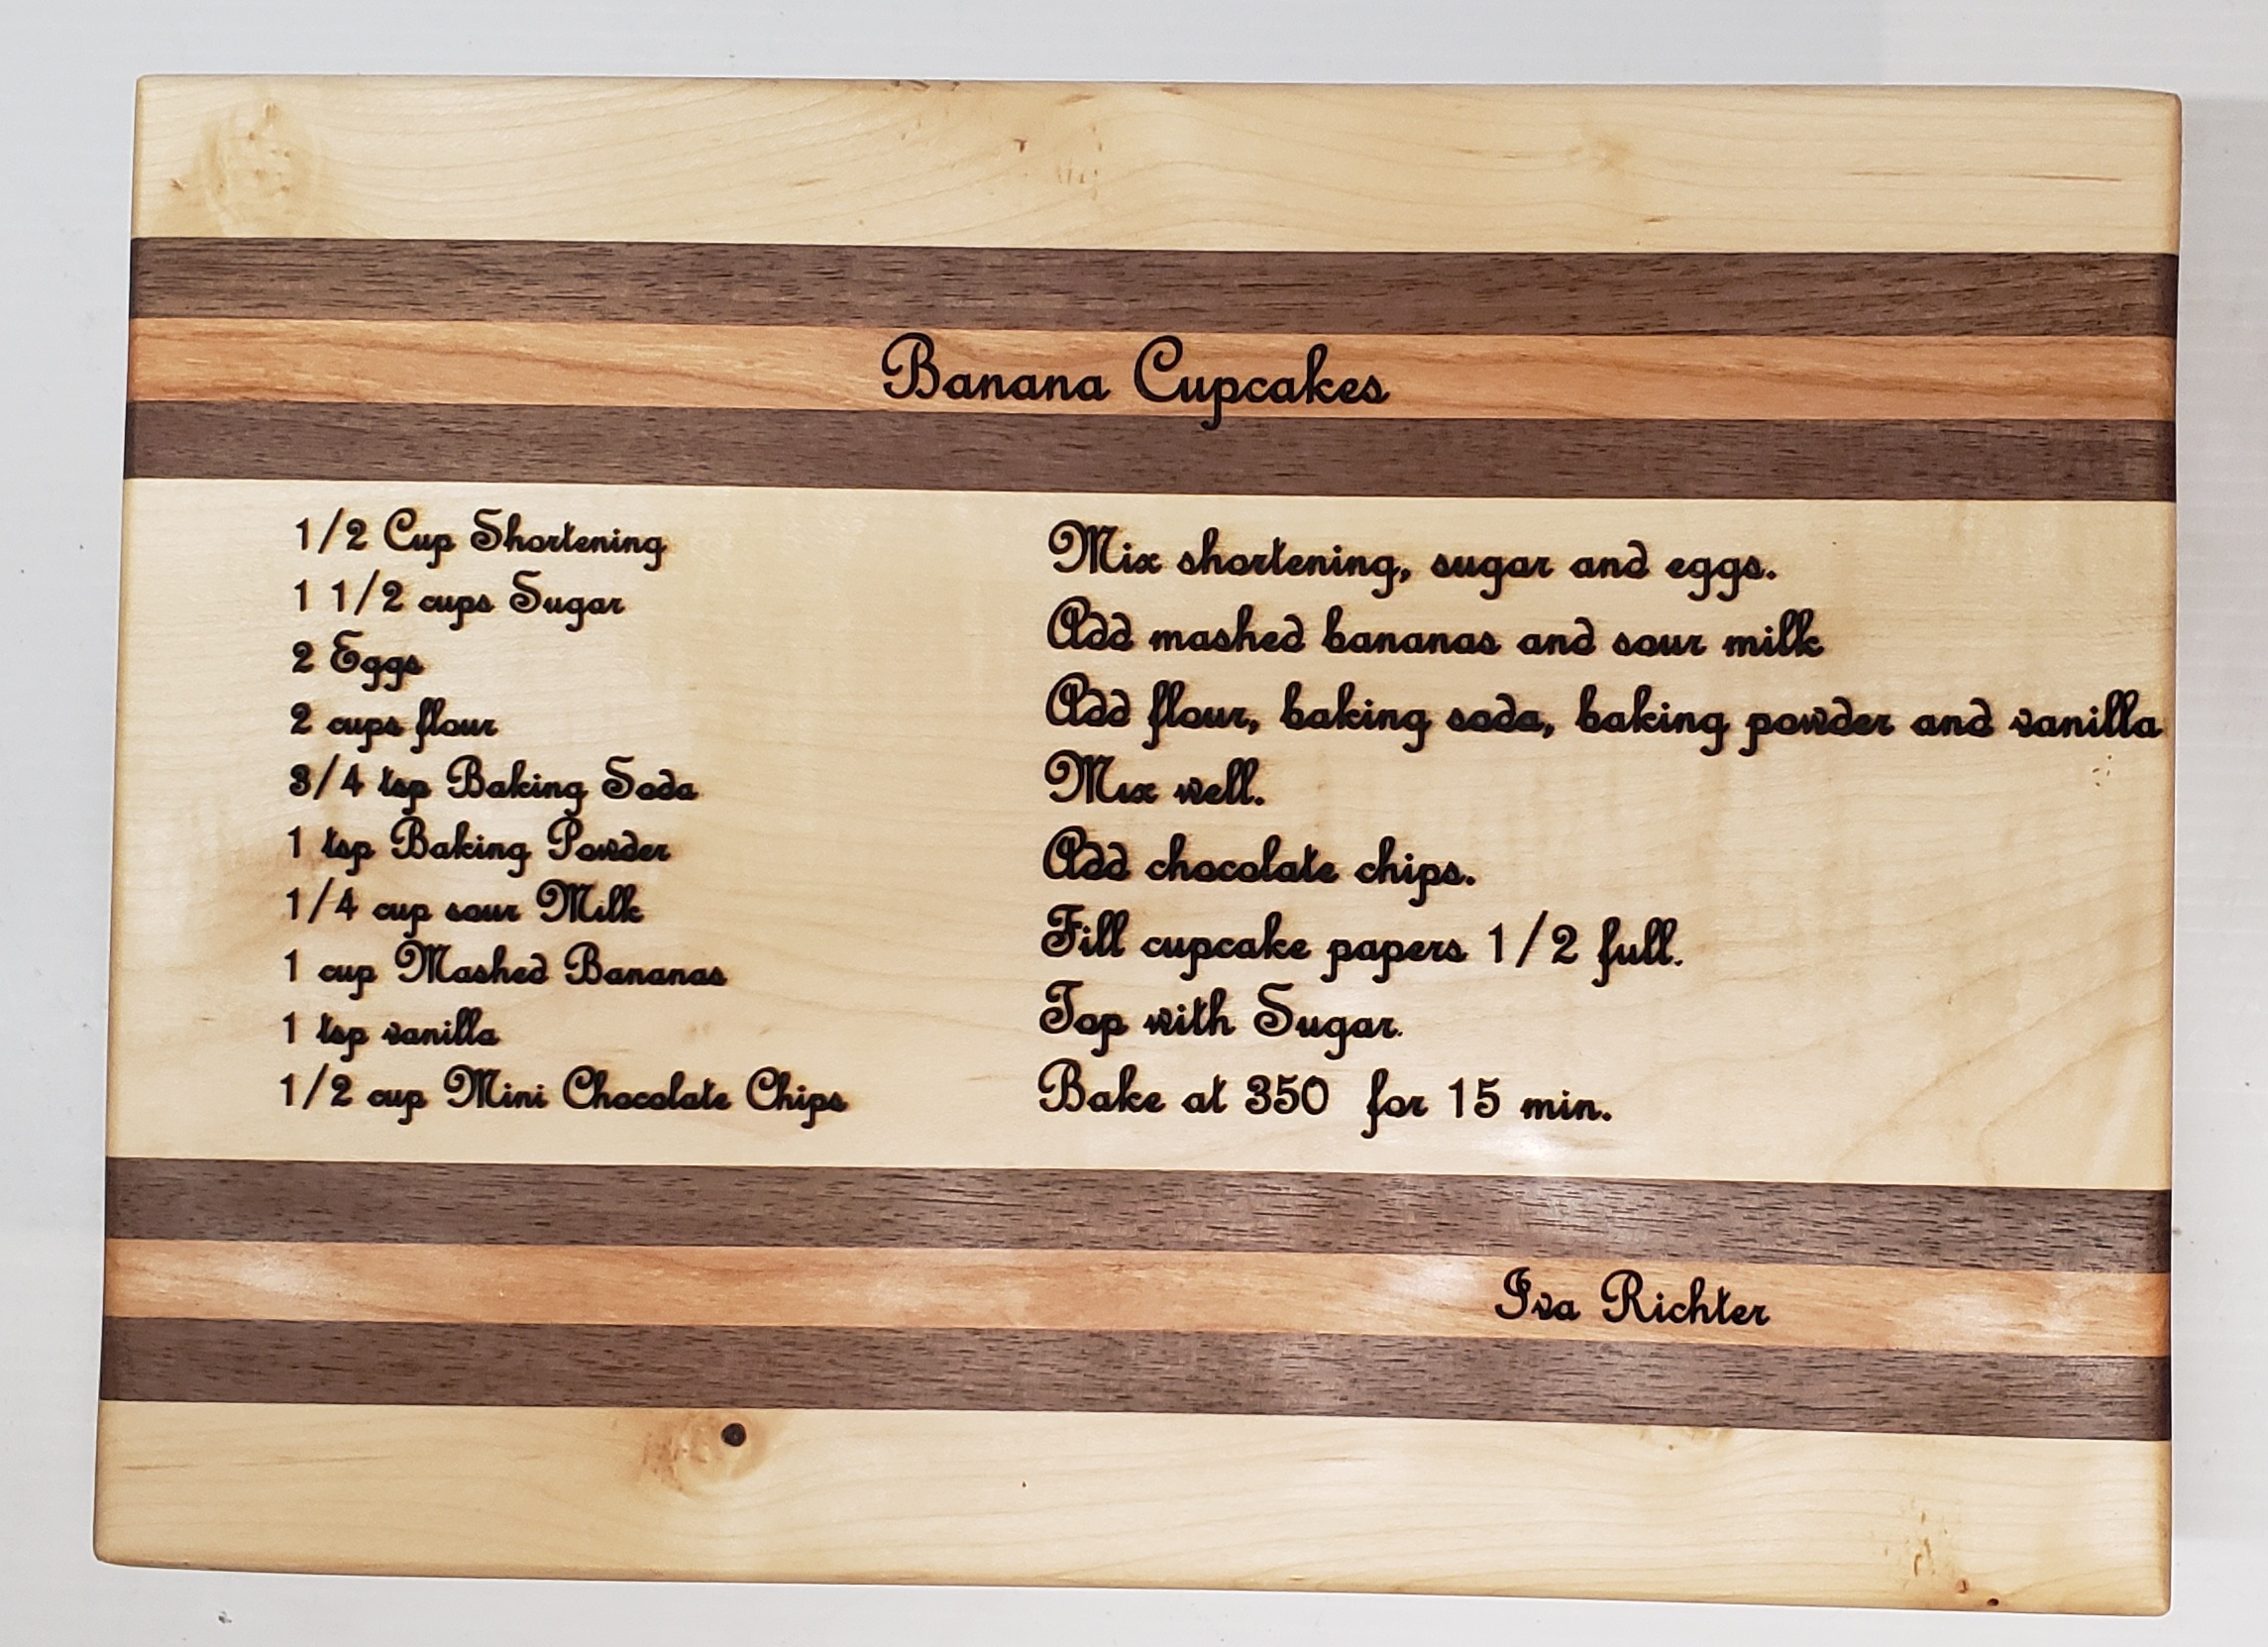 Banana Cupcakes
1/2 Cup Shortening
1 1/2 cups Sugar
2 Eggs
2 cups flour
3/4 tsp Baking Soda
1 tsp Baking Powder
1/4 cup sour Milk
1 cup Mashed Bananas
1 tsp vanilla
1/2 cup Mini Chocolate Chips
Mix shortening, sugar and eggs.
Add mashed bananas and sour milk
Add flour, baking soda, baking powder and vanilla
Mix well.
Add chocolate chips.
Fill cupcake papers 1/2 full.
Top with Sugar.
Bake at 350 for 15 min.
Iva Richter